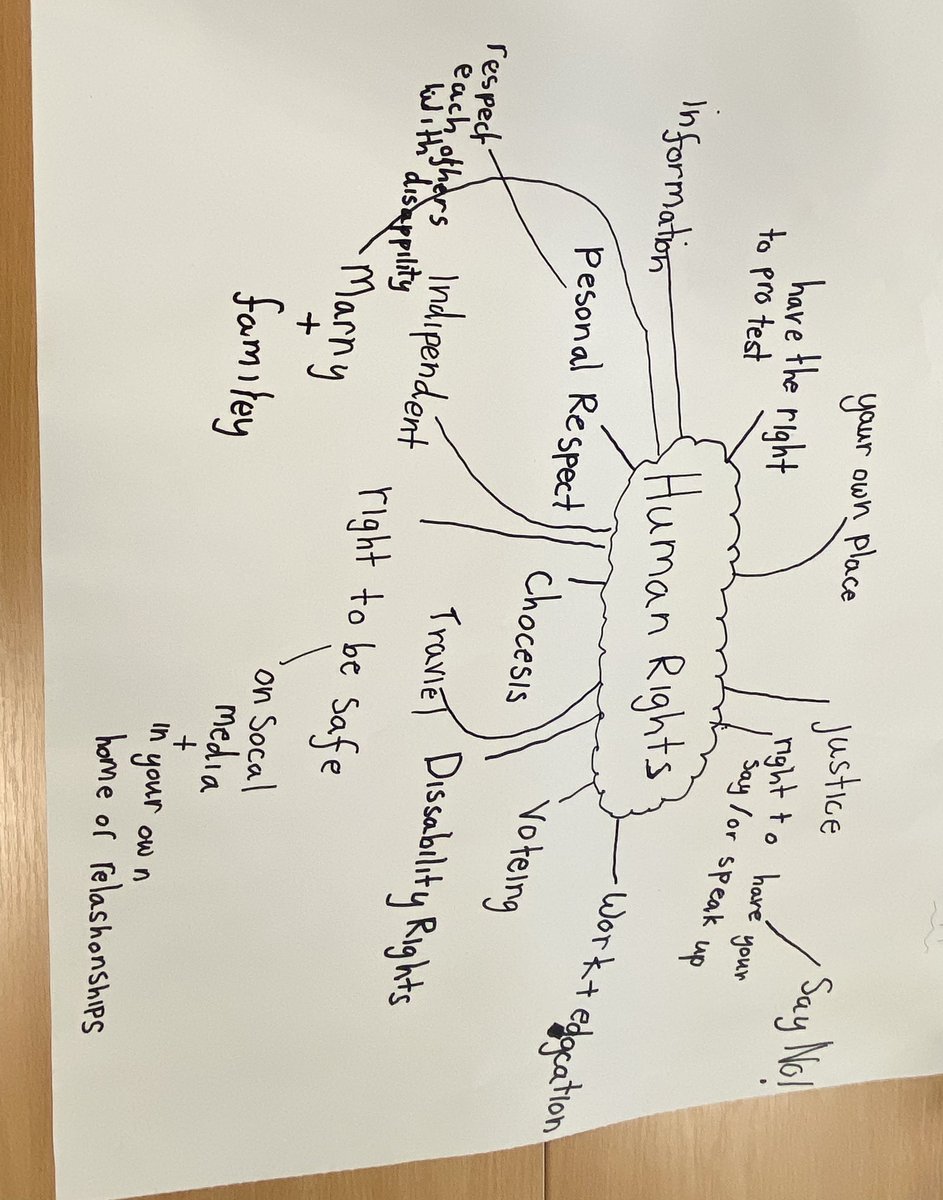 Human Rights
your own place
have the right
to protest
Information
Justice
right to have your
say / or speak up
Say No!
Pesonal Respect
respect
each others
with disappility
Work + edgcation
Voteing
Chocesis
Indipendent
Travlel
Dissability Rights
Marry
+
familey
right to be safe
on Socal
media
+
in your own
home or relashonships